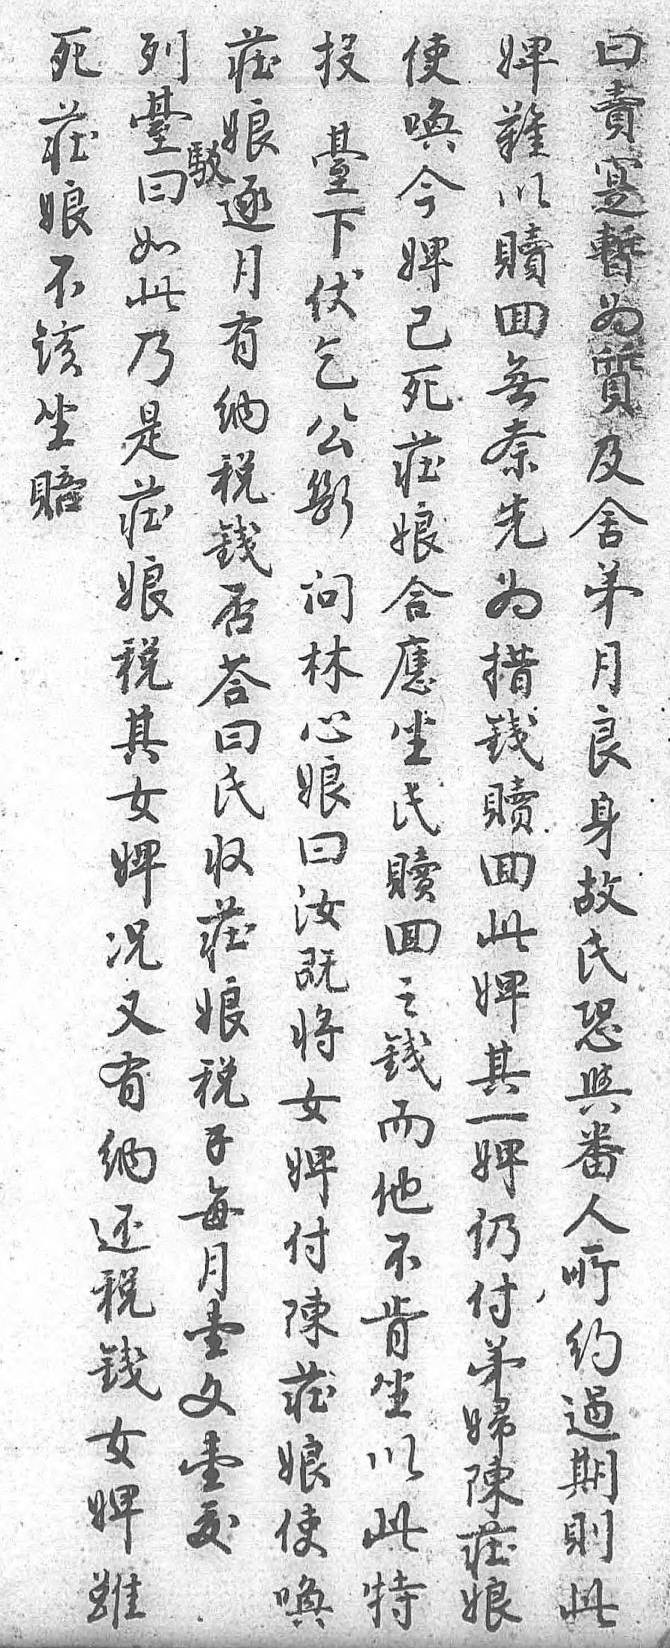 曰賣寔暫為質及舍弟月良身故氏恐與番人所約過期則此
婢難以贖回無奈先為措錢贖回此婢其一婢仍付弟婦陳莊娘
使喚今婢已死莊娘合應坐氏贖回之錢而他不肯坐以此特
投臺下伏乞公斷問林心娘曰汝既將女婢付陳莊娘使喚
莊娘逐月有納稅錢否答曰氏收莊娘稅子每月壹文壹
列臺駁曰如此乃是莊娘稅其女婢况又有納还稅錢女婢雖
死莊娘不該坐賠